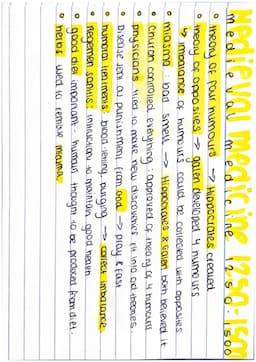 Medieval medicine 1250-1500
medieval medicine 1250-1500
• theory of four humours → Hippocrates created
• theory of opposites → galen developed 4 humours
↳ imbalance of humours could be corrected with opposites
• miasma: bad smell → Hippocrates & galen both believed it
• church controlled everything: approved of theory of 4 humours
• physicians: tried to make new discoveries fit into old theories.
• Disease sent as punishment from God → pray & fast
• humoral treatments: blood letting, purging → correct imbalance
• regemen sanitis: instructions to maintain good health
• good diet important: humours thought to be produced from diet.
• herbs used to remove miasma.